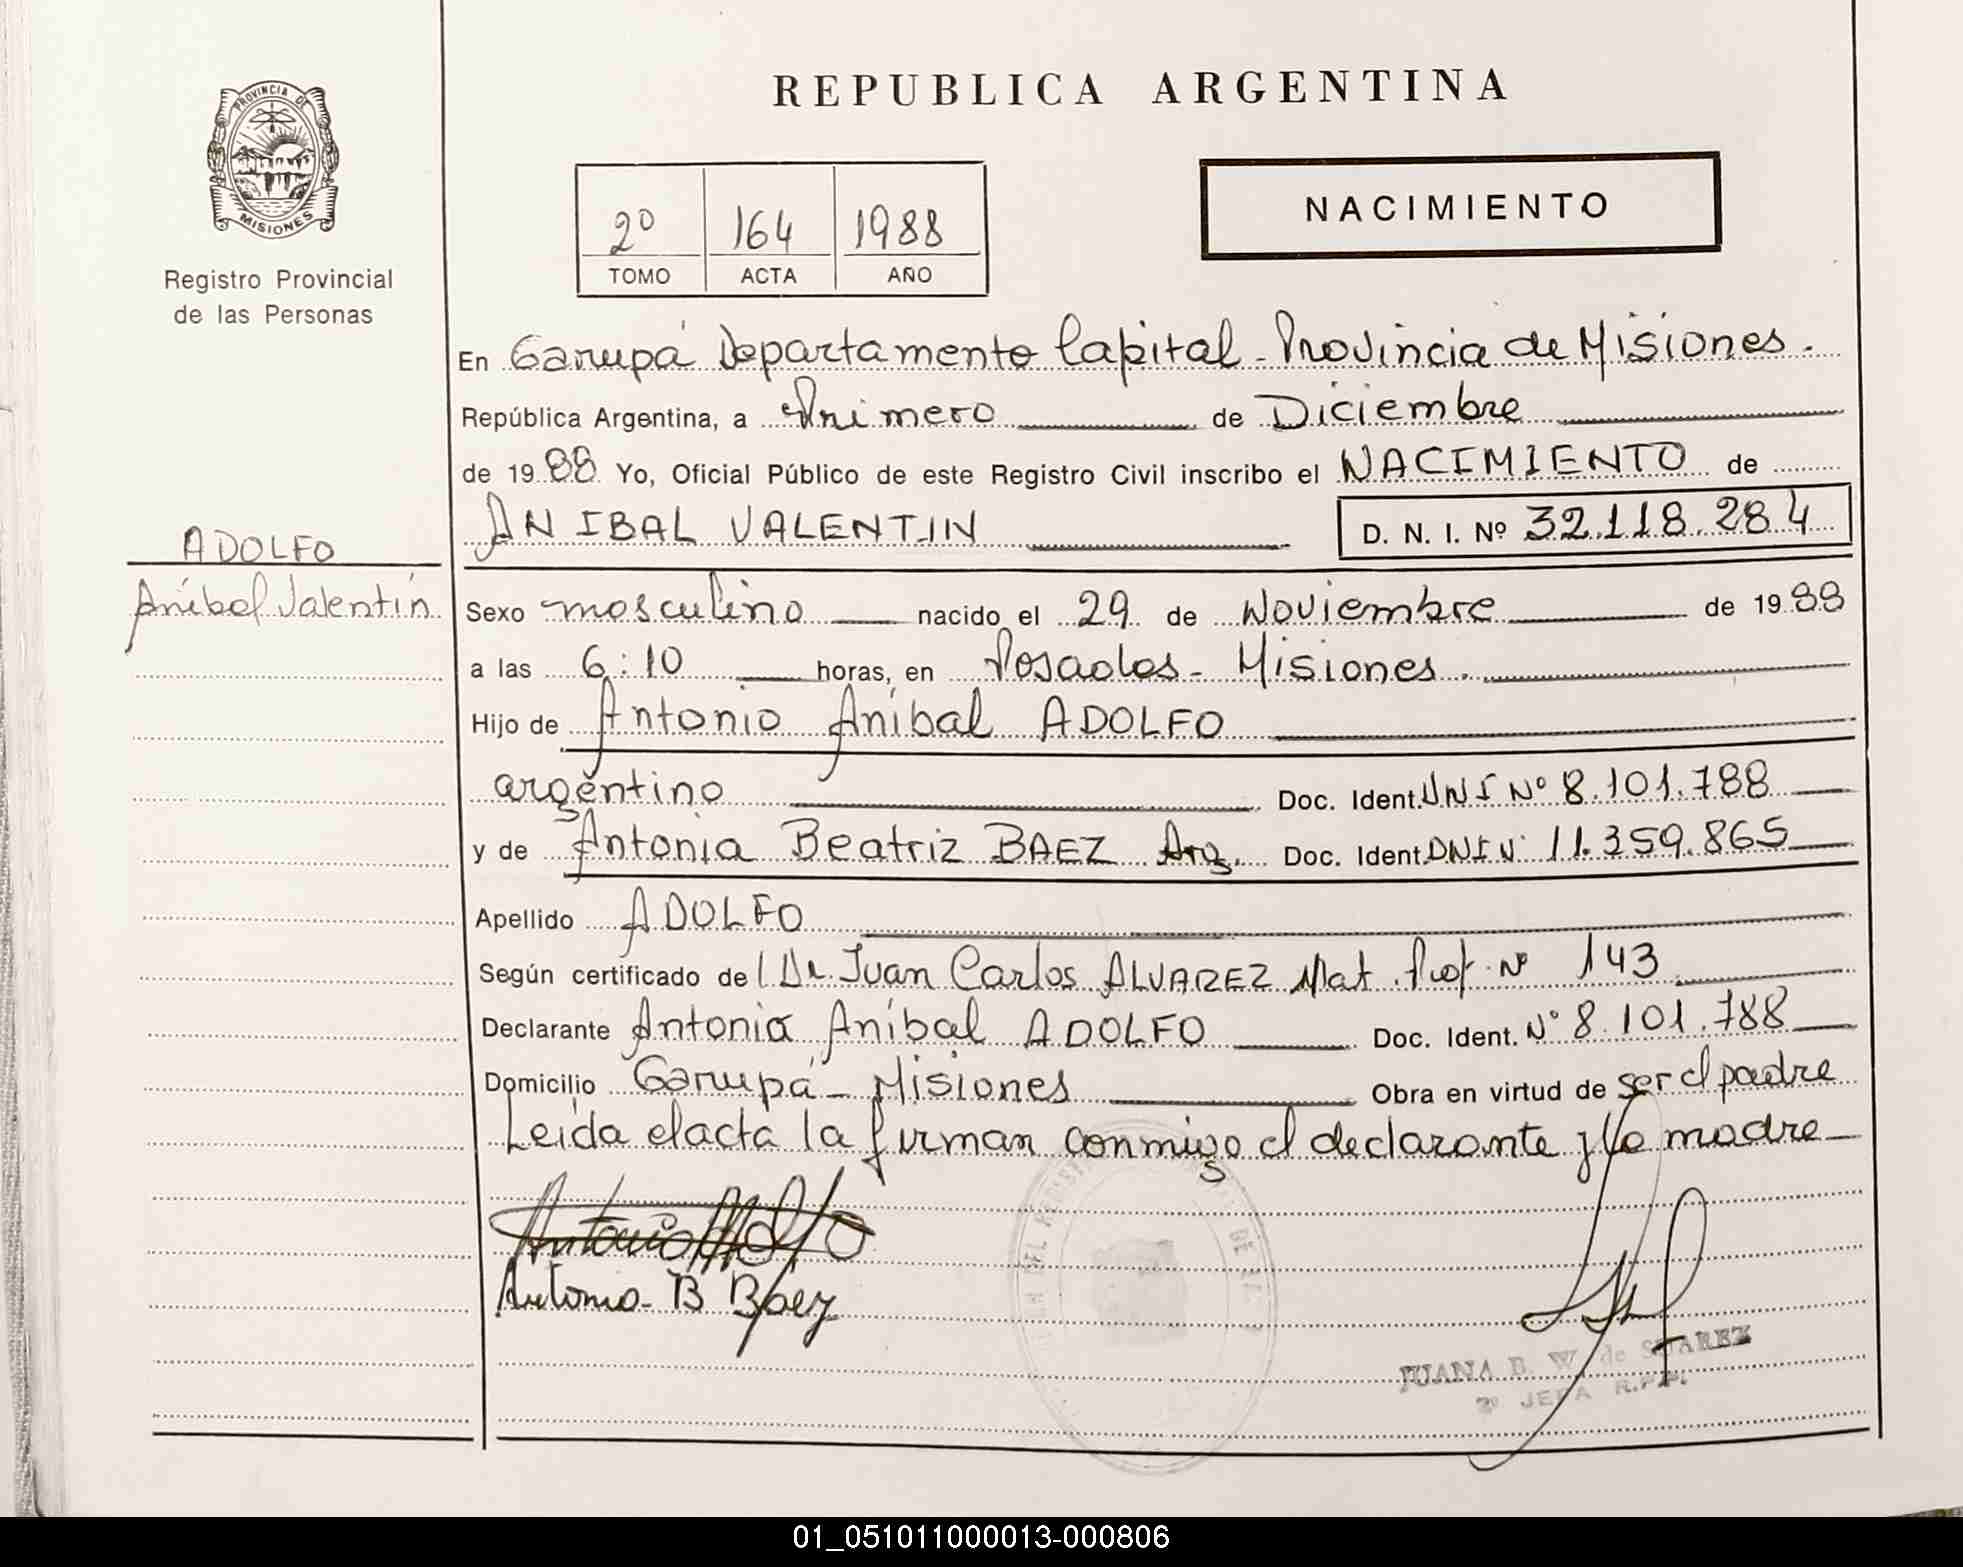 PROVINCIA DE
MISIONES
Registro Provincial
de las Personas
REPUBLICA ARGENTINA
2º 164 1988
TOMO ACTA AÑO
NACIMIENTO
En Garupá Departamento Capital - Provincia de Misiones.
República Argentina, a Primero de Diciembre
de 1988 Yo, Oficial Público de este Registro Civil inscribo el NACIMIENTO de
ANIBAL VALENTIN D. N. I. Nº 32.118.284
ADOLFO
Aníbal Valentín
Sexo masculino nacido el 29 de Noviembre de 1988
a las 6:10 horas, en Posadas - Misiones.
Hijo de Antonio Aníbal ADOLFO
argentino Doc. Ident. DNI Nº 8.101.788
y de Antonia Beatriz BAEZ Arg. Doc. Ident DNI Nº 11.359.865
Apellido ADOLFO
Según certificado del Dr. Juan Carlos ALVAREZ Mat. Prof. Nº 143
Declarante Antonio Aníbal ADOLFO Doc. Ident. Nº 8.101.788
Domicilio Garupá - Misiones Obra en virtud de ser el padre
Leída el acta la firman conmigo el declarante y la madre
Antonio Adolfo
Antonia B Báez
JUANA B. W. de SUAREZ
2º JEFA R.P.P.
01_051011000013-000806